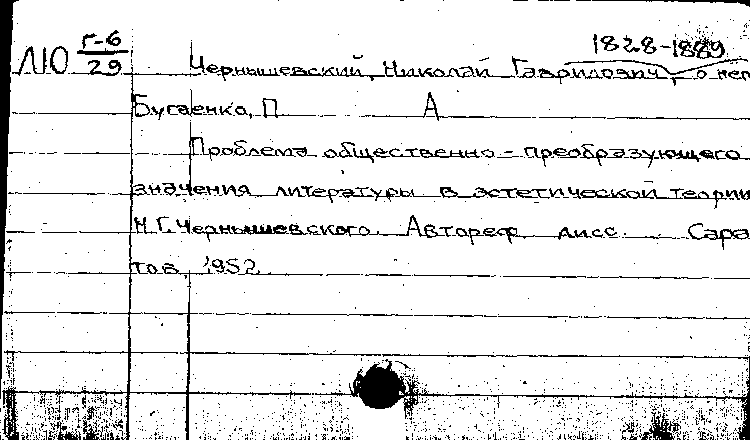 1828-1889
Л10 Г-6/29 Чернышевский, Николай Гаврилович, о нем
Бугаенко, П А
Проблема общественно-преобразующего
значения литературы в эстетической теории
Н.Г. Чернышевского. Автореф. дисс. Сара
тов, 1952